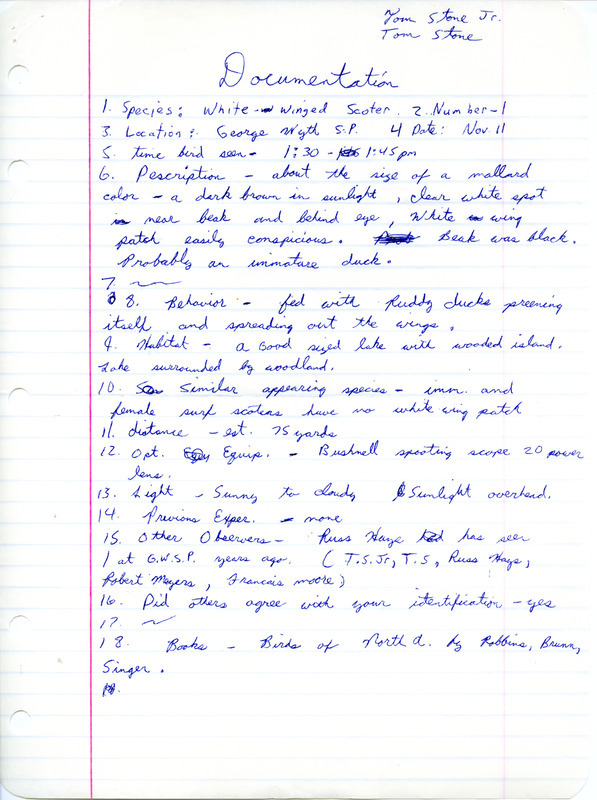 Tom Stone Jr.
Tom Stone
Documentation
1. Species: White-winged Scoter. 2. Number-1
3. Location: George Wyth S.P. 4 Date: Nov 11
5. time bird seen- 1:30 - 1:45 pm
6. Description - about the size of a mallard
color - a dark brown in sunlight, clear white spot
near beak and behind eye, White wing
patch easily conspicious. Beak was black.
Probably an immature duck.
7. ~
8. Behavior - fed with Ruddy ducks preening
itself and spreading out the wings.
9. Habitat - a good sized lake with wooded island.
Lake surrounded by woodland.
10. Similar appearing species - imm. and
female surf scoters have no white wing patch
11. distance - est. 75 yards
12. Opt. Equip. - Bushnell spooting scope 20 power
lens.
13. Light - Sunny to cloudy Sunlight overhead.
14. Previous Exper. - none
15. Other Observers - Russ Hays has seen
1 at G.W.S.P. years ago. (T.S.Jr, T.S, Russ Hays,
Robert Meyers, Francais moore)
16. Did others agree with your identification - yes
17. ~
18. Books - Birds of North A. by Robbins, Brunn,
Singer.